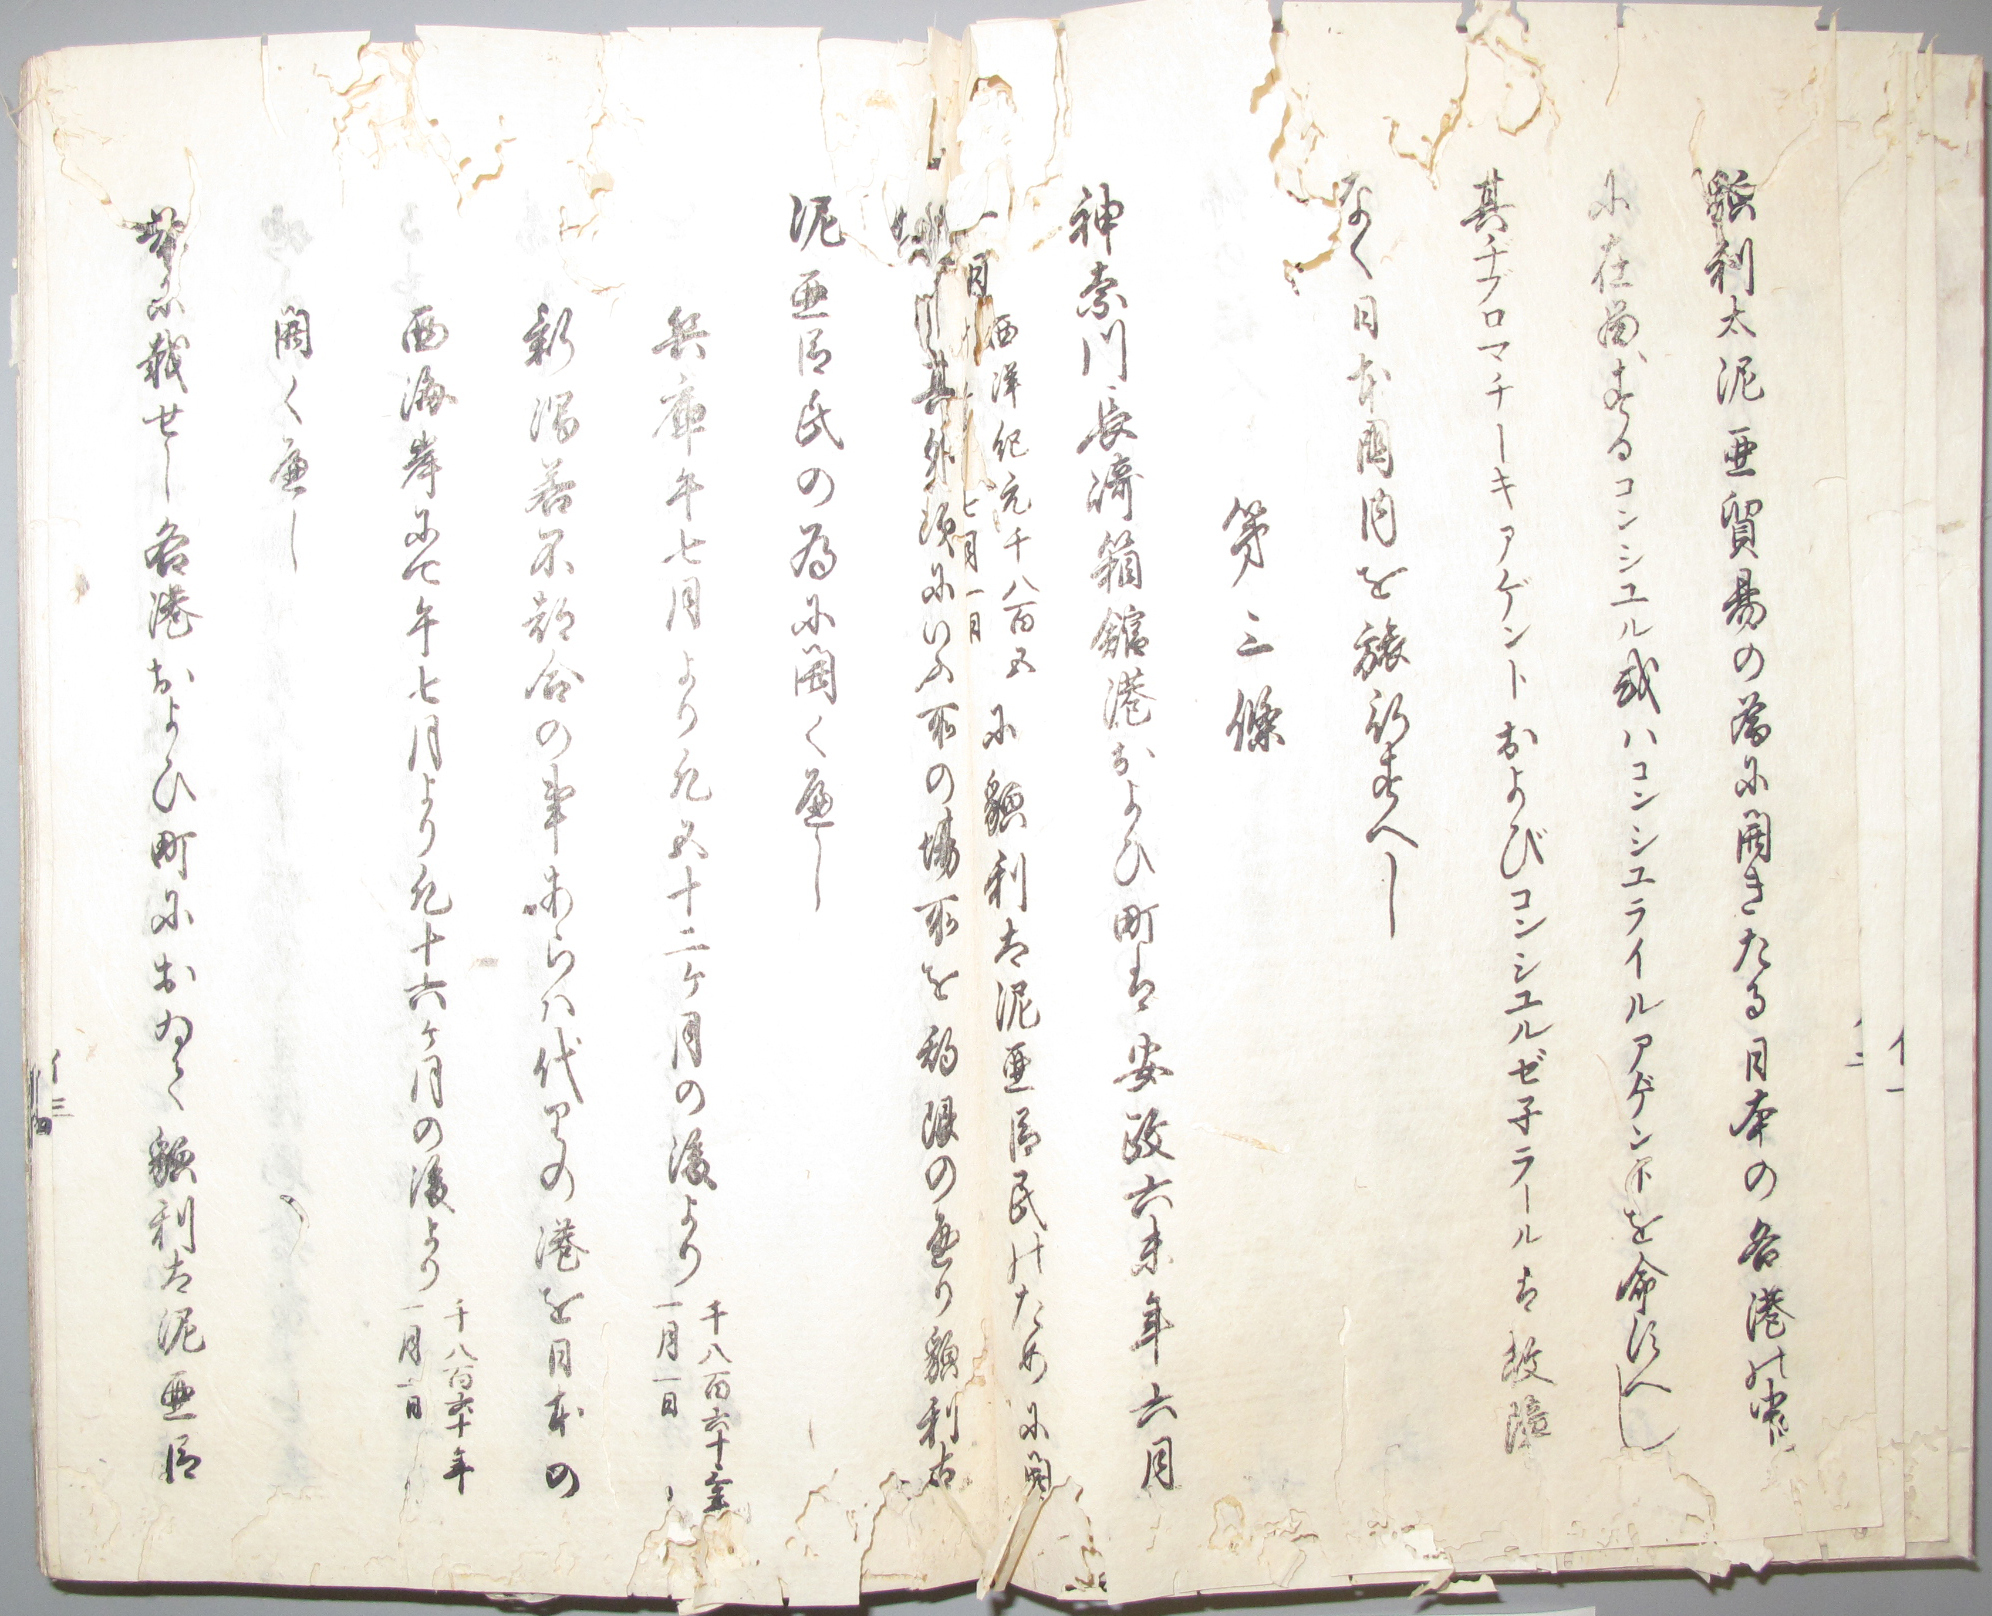 貌利太泥亜貿易の為に開きたる日本の各港の内
に在留するコンシユル或ハコンシユライルアゲントを命すへし
其チプロマチーキアゲントおよびコンシユルゼ子ラールは故障
なく日本国内を旅行すへし
第三條
神奈川長崎箱館港およひ町は安政六未年六月
西洋紀元千八百五
七月一日
に貌利太泥亜臣民のために開
其外次にいふ所の場所を約限の通り貌利太
泥亜臣民の為に開くへし
兵庫午七月より凡五十二ケ月の後より
千八百六十三年
一月一日
新潟若不都合の事あらハ代りの港を日本の
西海岸にて午七月より凡十六ケ月の後より
千八百六十年
一月一日
開くへし
前に載せし各港およひ町におゐて貌利太泥亜臣